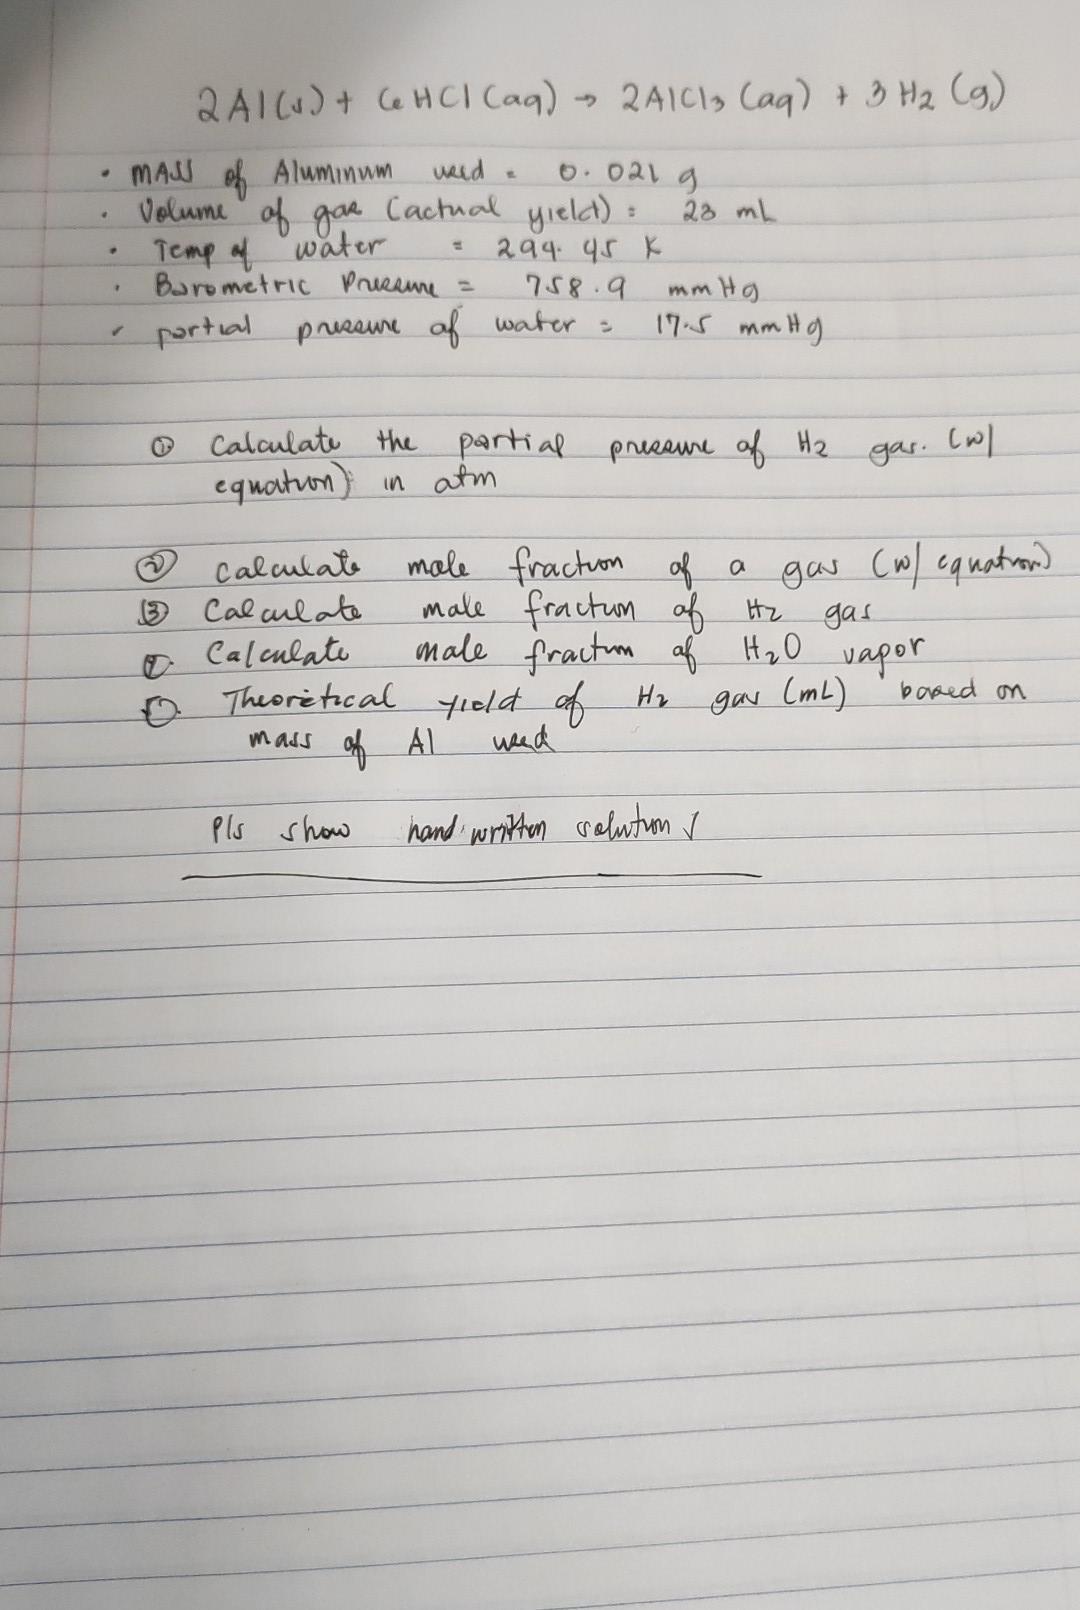 2Al(s) + 6HCl (aq) → 2AlCl3 (aq) + 3H2 (g)
• MASS of Aluminum used = 0.021 g
• Volume of gas (actual yield) = 23 mL
• Temp of water = 294.45 K
• Barometric Pressure = 758.9 mmHg
• partial pressure of water = 17.5 mmHg
① Calculate the partial pressure of H2 gas. (w/
equation) in atm
② calculate mole fraction of a gas (w/ equation)
③ Calculate mole fraction of H2 gas
④. Calculate mole fraction of H2O vapor
⑤. Theoretical yield of H2 gas (mL) based on
mass of Al used
Pls show hand written solution